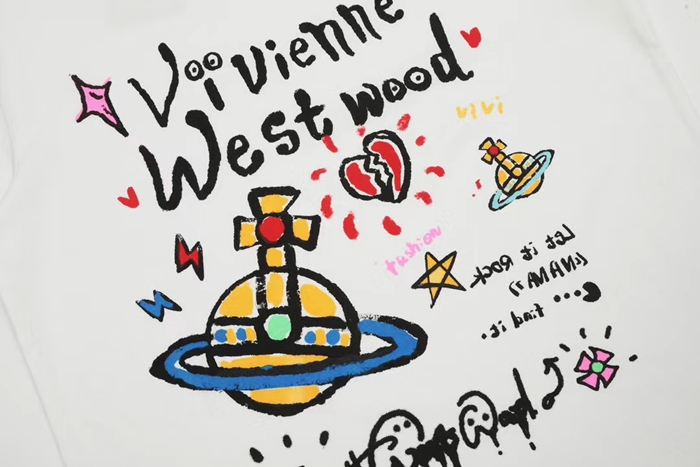 Vivienne
Westwood
vivi
fashion
Let it it ROCK
«NANA»
find it.